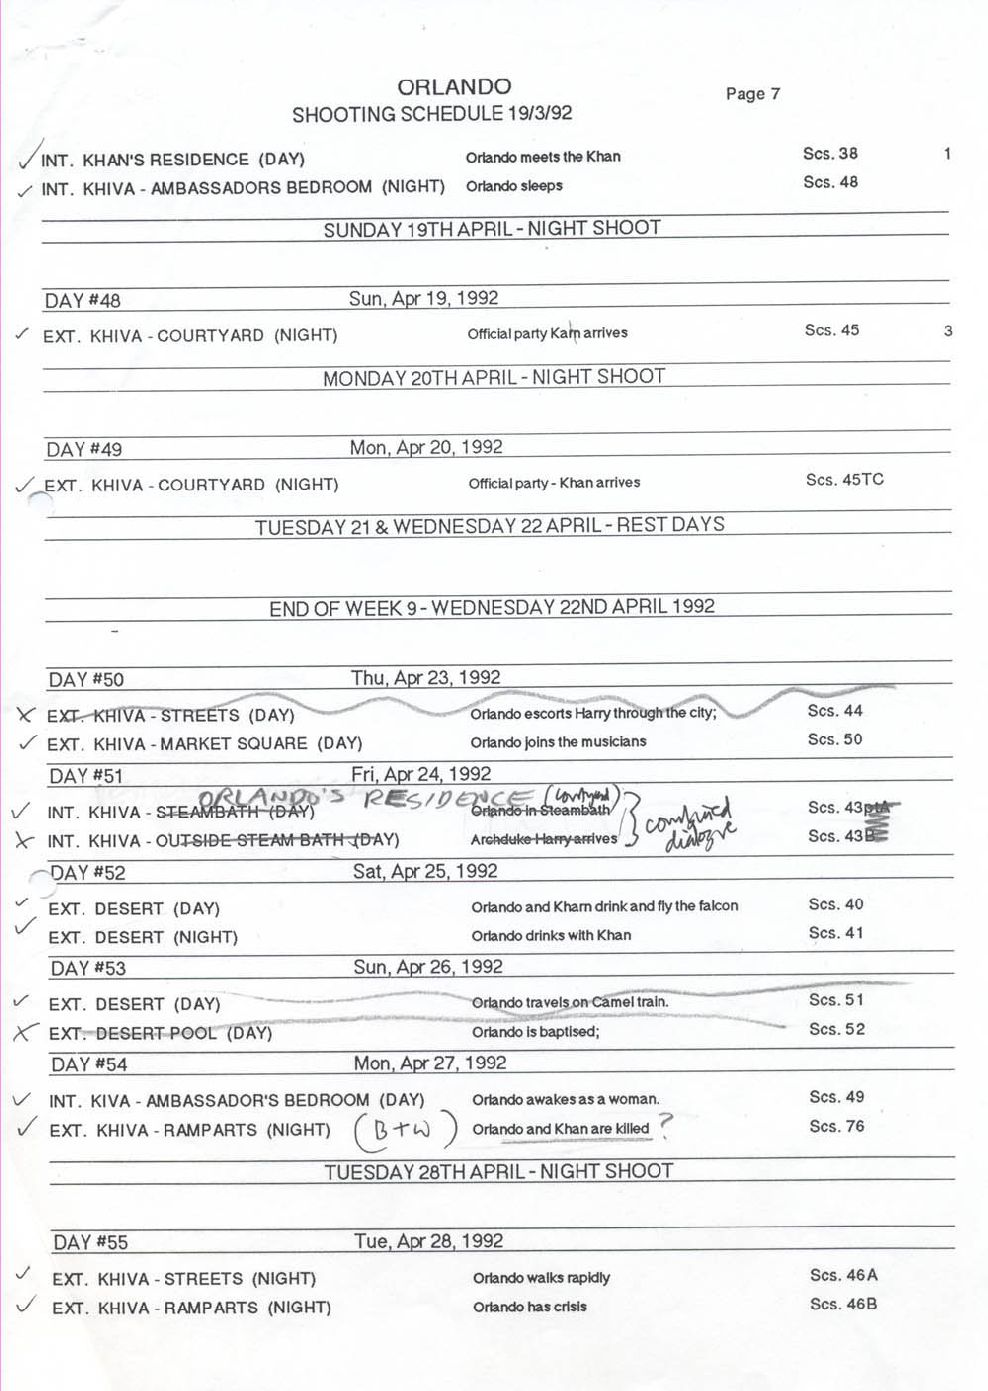 ORLANDO
SHOOTING SCHEDULE 19/3/92 Page 7
INT. KHAN'S RESIDENCE (DAY) Orlando meets the Khan Scs. 38 1
INT. KHIVA - AMBASSADORS BEDROOM (NIGHT) Orlando sleeps Scs. 48
SUNDAY 19TH APRIL - NIGHT SHOOT
DAY #48 Sun, Apr 19, 1992
EXT. KHIVA - COURTYARD (NIGHT) Official party Kahn arrives Scs. 45 3
MONDAY 20TH APRIL - NIGHT SHOOT
DAY #49 Mon, Apr 20, 1992
EXT. KHIVA - COURTYARD (NIGHT) Official party - Khan arrives Scs. 45TC
TUESDAY 21 & WEDNESDAY 22 APRIL - REST DAYS
END OF WEEK 9 - WEDNESDAY 22ND APRIL 1992
DAY #50 Thu, Apr 23, 1992
EXT. KHIVA - STREETS (DAY) Orlando escorts Harry through the city; Scs. 44
EXT. KHIVA - MARKET SQUARE (DAY) Orlando joins the musicians Scs. 50
DAY #51 Fri, Apr 24, 1992
ORLANDO'S RESIDENCE (Courtyard)
INT. KHIVA - STEAMBATH (DAY) Orlando in Steambath Scs. 43ptA
combined dialogue
INT. KHIVA - OUTSIDE STEAM BATH (DAY) Archduke Harry arrives Scs. 43B
DAY #52 Sat, Apr 25, 1992
EXT. DESERT (DAY) Orlando and Kham drink and fly the falcon Scs. 40
EXT. DESERT (NIGHT) Orlando drinks with Khan Scs. 41
DAY #53 Sun, Apr 26, 1992
EXT. DESERT (DAY) Orlando travels on Camel train. Scs. 51
EXT. DESERT POOL (DAY) Orlando is baptised; Scs. 52
DAY #54 Mon, Apr 27, 1992
INT. KIVA - AMBASSADOR'S BEDROOM (DAY) Orlando awakes as a woman. Scs. 49
EXT. KHIVA - RAMPARTS (NIGHT) (B+W) Orlando and Khan are killed ? Scs. 76
TUESDAY 28TH APRIL - NIGHT SHOOT
DAY #55 Tue, Apr 28, 1992
EXT. KHIVA - STREETS (NIGHT) Orlando walks rapidly Scs. 46A
EXT. KHIVA - RAMPARTS (NIGHT) Orlando has crisis Scs. 46B